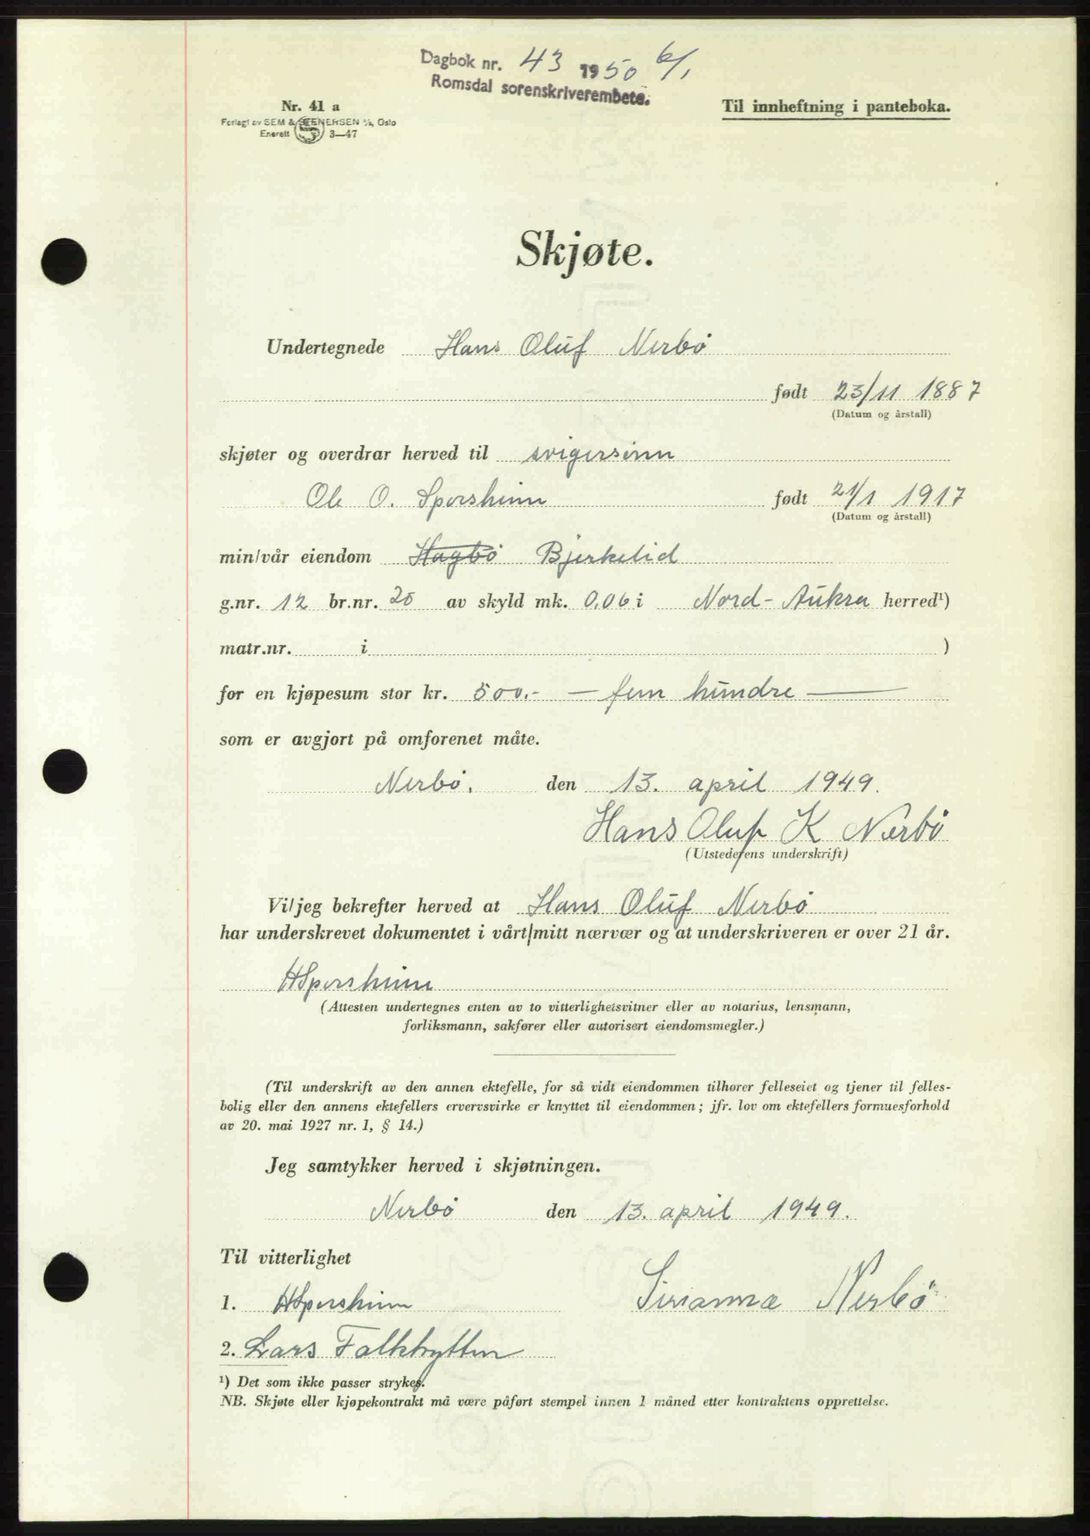 Dagbok nr. 43 1950 6/1
Romsdal sorenskriverembete.
Nr. 41 a
Til innheftning i panteboka.
Forlagt av SEM & STENERSEN A/S, Oslo
Enerett 3—47
Skjøte.
Undertegnede Hans Oluf Nerbø
født 23/11 1887
(Datum og årstall)
skjøter og overdrar herved til svigersønn
Ole O. Sporsheim født 21/1 1917
(Datum og årstall)
min/vår eiendom Hagbø Bjerkelid
g.nr. 12 br.nr. 20 av skyld mk. 0,06 i Nord-Aukra herred¹)
matr.nr. i )
for en kjøpesum stor kr. 500.- — fem hundre —
som er avgjort på omforenet måte.
Nerbø. den 13. april 1949.
Hans Oluf K Nerbö
(Utstederens underskrift)
Vi/jeg bekrefter herved at Hans Oluf Nerbø
har underskrevet dokumentet i vårt/mitt nærvær og at underskriveren er over 21 år.
HSporsheim
(Attesten undertegnes enten av to vitterlighetsvitner eller av notarius, lensmann,
forliksmann, sakfører eller autorisert eiendomsmegler.)
(Til underskrift av den annen ektefelle, for så vidt eiendommen tilhører felleseiet og tjener til felles-
bolig eller den annens ektefellers ervervsvirke er knyttet til eiendommen; jfr. lov om ektefellers formuesforhold
av 20. mai 1927 nr. 1, § 14.)
Jeg samtykker herved i skjøtningen.
Nerbø den 13. april 1949.
Til vitterlighet
1. HSporsheim Nerbø
2. Lars Falkhytten
¹) Det som ikke passer strykes.
NB. Skjøte eller kjøpekontrakt må være påført stempel innen 1 måned etter kontraktens opprettelse.